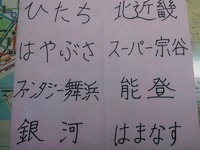 ひたち 北近畿
はやぶさ スーパー宗谷
ファンタジー舞浜 能登
銀河 はまなす